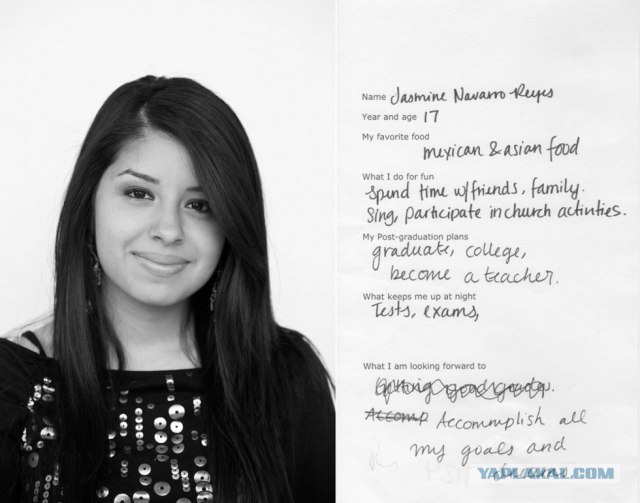 Name Jasmine Navarro-Reyes
Year and age 17
My favorite food
mexican & asian food
What I do for fun
spend time w/friends, family.
Sing, participate in church activities.
My Post-graduation plans
graduate, college,
become a teacher.
What keeps me up at night
Tests, exams,
What I am looking forward to
Getting good grades.
Accomp Accommplish all
my goals and
YAPLAKAL.COM